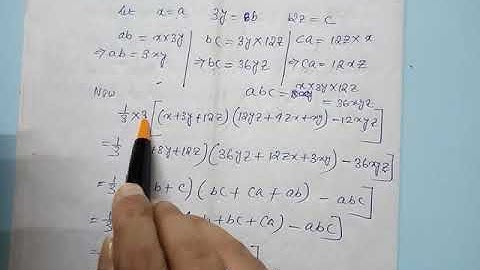 let x=a 3y=b 12z=c
ab=x×3y bc=3y×12z ca=12z×x
⇒ab=3xy ⇒bc=36yz ⇒ca=12xz
abc= x×3y×12z
=36xyz
Now
1/3×3[(x+3y+12z)(12yz+4zx+xy)-12xyz]
=1/3 +3y+12z)(36yz+12zx+3xy)-36xyz]
=1/3 b+c)(bc+ca+ab)-abc]
=1/3 +bc+ca)-abc]
=